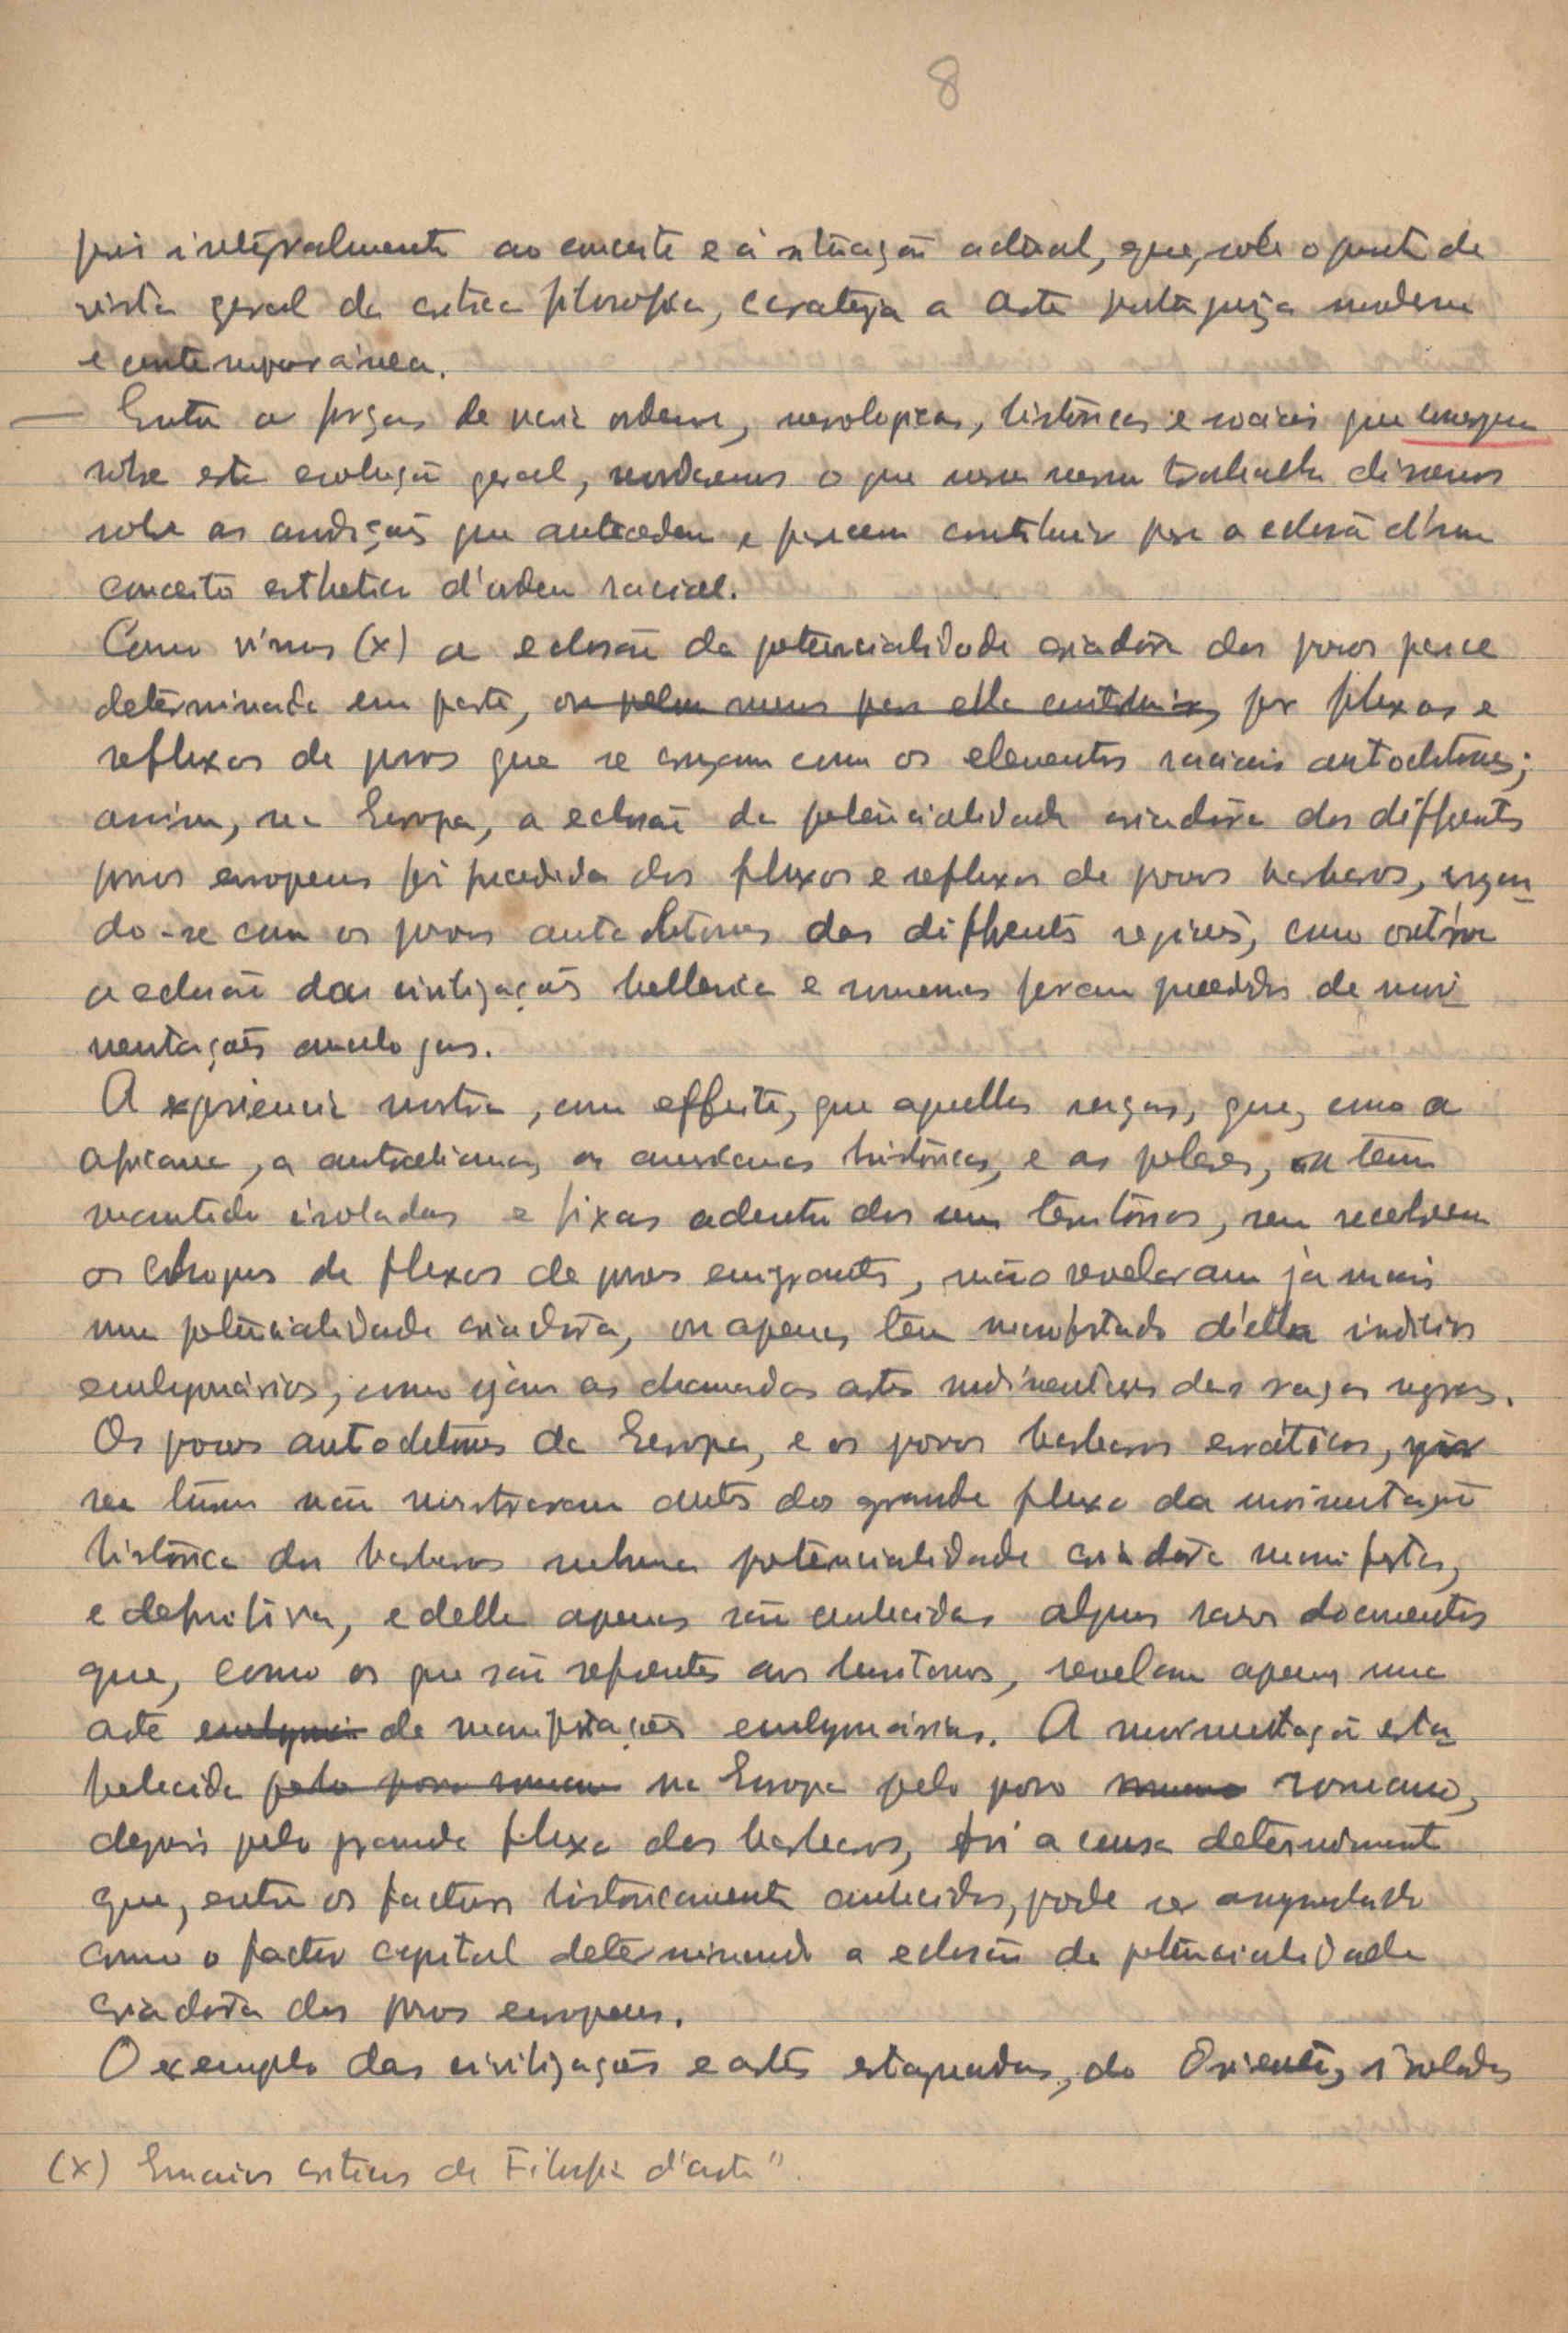 8
pois integralmente ao conceito e á situação actual, que, sob o ponto de
vista geral da critica filosofica, a arte portugueza moderna
e contemporánea.
— Entre as forças de varia ordem, históricas e sociais que
sobre esta evolução geral, o que trabalho dissemos
sobre as condições que antecedem e parecem contribuir para a eclosão d'um
conceito esthetico d'ordem racial.
Como vimos (x) a eclosão da potencialidade criadora dos povos parece
determinada em parte, ou pelo menos para ella contribuir, por fluxos e
refluxos de povos que se cruzam com os elementos raciais autochtones;
assim, na Europa, a eclosão da potencialidade criadora dos differentes
povos europeus foi precedida dos fluxos e refluxos de povos barbaros, cruzan-
do-se com os povos autochtones das differentes regiões, como outróra
a eclosão das civilizações hellenica e romanas foram precedidas de movi-
mentações analogas.
A experiencia mostra, com effeito, que aquellas raças, que, como a
africana, a australiana, as americanas históricas, e as polares, se tem
mantido isoladas e fixas adentro dos seus territórios, sem receberem
os choques de fluxos de povos emigrantes, não revelaram já mais
uma potencialidade criadora, ou apenas tem manifestado d'ella indicios
embryonários, como sejam as chamadas artes rudimentares das raças negras.
Os povos autochtones da Europa, e os povos barbaros erráticos,
não mostraram antes do grande fluxo da movimentação
histórica dos barbaros nenhuma potencialidade criadora manifesta,
e definitiva, e della apenas são conhecidos alguns raros documentos
que, como os que são referentes aos lusitanos, revelam apenas uma
arte de manifestações embryonárias. A movimentação esta-
belecida pelo povo romano na Europa pelo povo romano,
depois pelo grande fluxo dos barbaros, foi a causa determinante
que, entre os factores históricamente conhecidos, pode ser
como o factor capital determinando a eclosão da potencialidade
criadora dos povos europeus.
O exemplo das civilizações e artes estagnadas, do Oriente, isoladas
(x) Ensaios criticos de Filosofia d'arte".